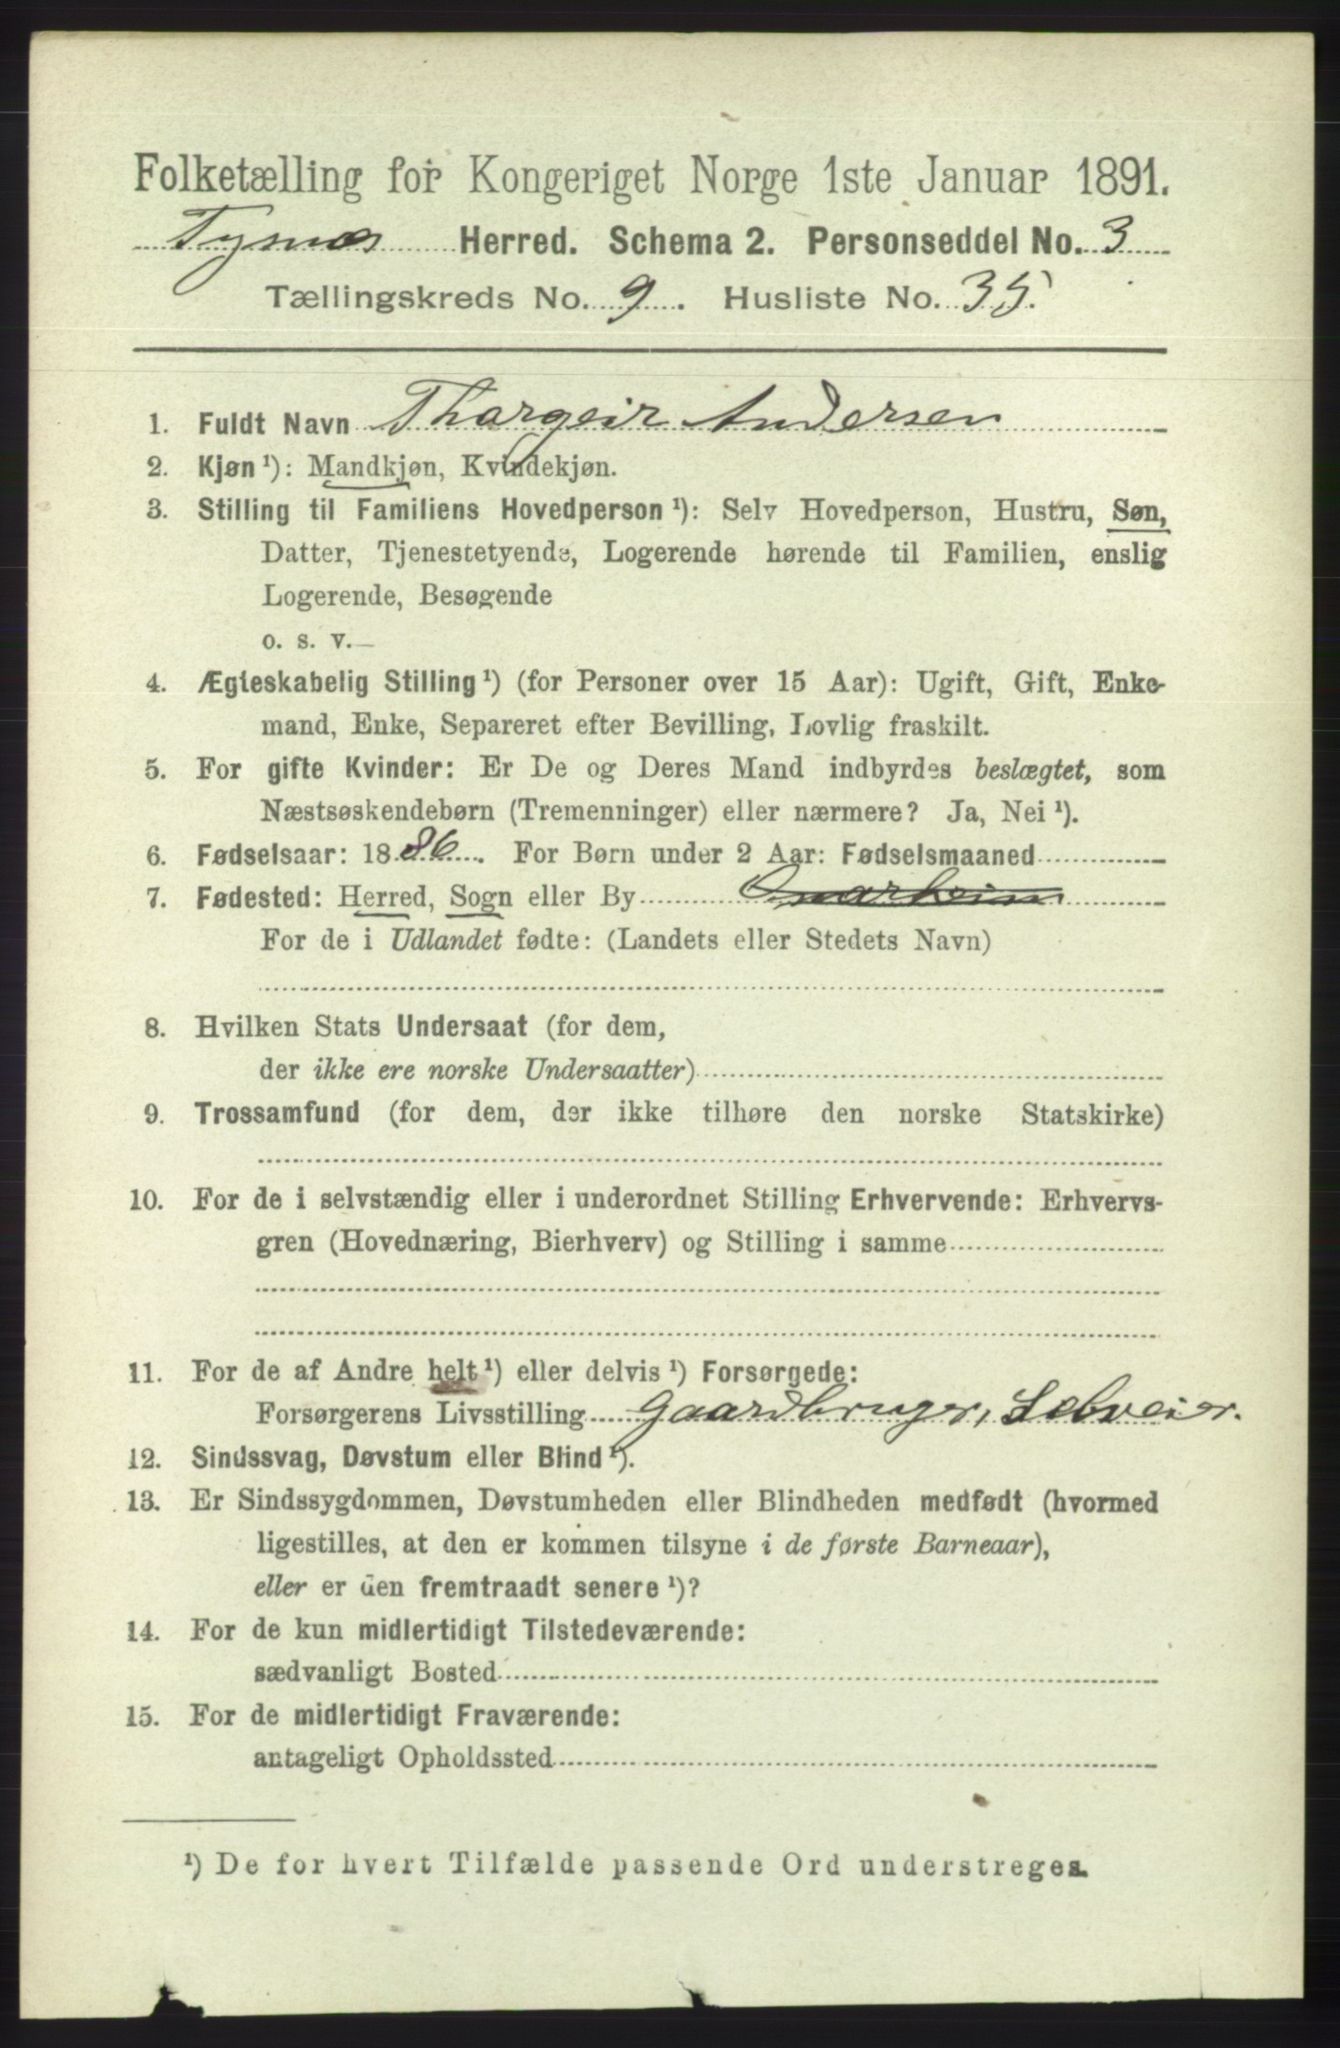 Folketælling for Kongeriget Norge 1ste Januar 1891.
Tysnes Herred. Schema 2. Personseddel No. 3
Tællingskreds No. 9. Husliste No. 35.
1. Fuldt Navn Thorgeir Andersen
2. Kjøn ¹): Mandkjøn, Kvindekjøn.
3. Stilling til Familiens Hovedperson ¹): Selv Hovedperson, Hustru, Søn,
Datter, Tjenestetyende, Logerende hørende til Familien, enslig
Logerende, Besøgende
o. s. v.
4. Ægteskabelig Stilling ¹) (for Personer over 15 Aar): Ugift, Gift, Enke-
mand, Enke, Separeret efter Bevilling, Lovlig fraskilt.
5. For gifte Kvinder: Er De og Deres Mand indbyrdes beslægtet, som
Næstsøskendebørn (Tremenninger) eller nærmere? Ja, Nei ¹).
6. Fødselsaar: 1886. For Børn under 2 Aar: Fødselsmaaned
7. Fødested: Herred, Sogn eller By Onarheim
For de i Udlandet fødte: (Landets eller Stedets Navn)
8. Hvilken Stats Undersaat (for dem,
der ikke ere norske Undersaatter)
9. Trossamfund (for dem, der ikke tilhøre den norske Statskirke)
10. For de i selvstændig eller i underordnet Stilling Erhvervende: Erhvervs-
gren (Hovednæring, Bierhverv) og Stilling i samme
11. For de af Andre helt ¹) eller delvis ¹) Forsørgede:
Forsørgerens Livsstilling Gaardbruger, Selveier.
12. Sindssvag, Døvstum eller Blind ¹).
13. Er Sindssygdommen, Døvstumheden eller Blindheden medfødt (hvormed
ligestilles, at den er kommen tilsyne i de første Barneaar),
eller er den fremtraadt senere ¹)?
14. For de kun midlertidigt Tilstedeværende:
sædvanligt Bosted
15. For de midlertidigt Fraværende:
antageligt Opholdssted
¹) De for hvert Tilfælde passende Ord understreges.